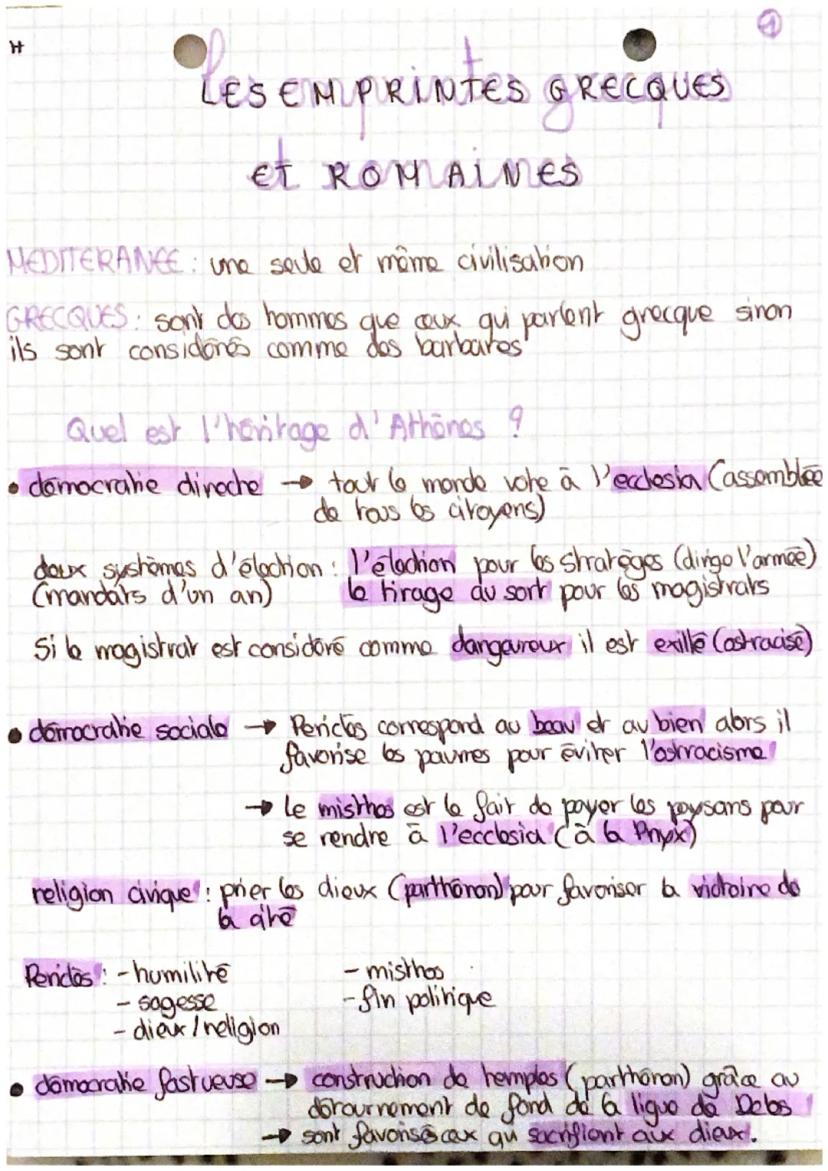 H
1
Les empreintes grecques
LES EMPRINTES GRECQUES
et romaines
ET ROMAINES
MEDITERANEE : une seule et même civilisation
GRECQUES : sont des hommes que ceux qui parlent grecque sinon
ils sont considérés comme des barbares
Quel est l'héritage d'Athènes ?
• démocratie directe → tout le monde vote à l'ecclesia (assemblée
de tous les citoyens)
deux systèmes d'élection : l'élection pour les stratèges (dirige l'armée)
(mandats d'un an) le tirage au sort pour les magistrats
Si le magistrat est considéré comme dangereux il est exillé (ostracisé)
• démocratie sociale → Periclès correspond au beau et au bien alors il
favorise les pauvres pour éviter l'ostracisme
→ Le misthos est le fait de payer les paysans pour
se rendre à l'ecclesia (à la Pnyx)
religion civique : prier les dieux (parthénon) pour favoriser la victoire de
la cité
Periclès : - humilité - misthos
- sagesse - fin politique
- dieux / religion
• démocratie fastueuse → construction de temples (parthénon) grâce au
détournement de fond de la ligue de Délos
→ sont favorisés ceux qui sacrifient aux dieux.